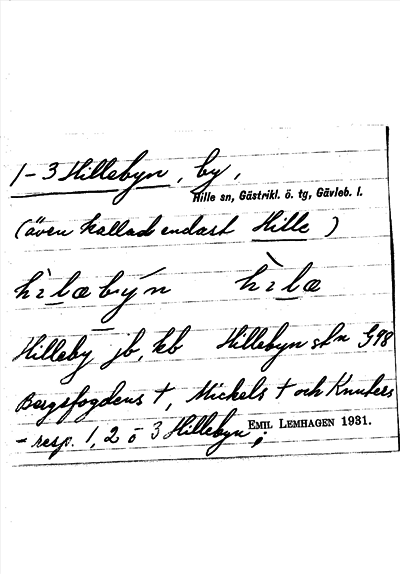 1-3 Hillebyn, by,
Hille sn, Gästrikl. ö. tg, Gävleb. l.
(även kallad endast Hille )
hìlæbýn hìlæ
Hilleby jb, kb Hillebyn stn G98
Bergsfogdens +, Mickels + och Knuters
- resp. 1, 2 o 3 Hillebyn;
EMIL LEMHAGEN 1931.